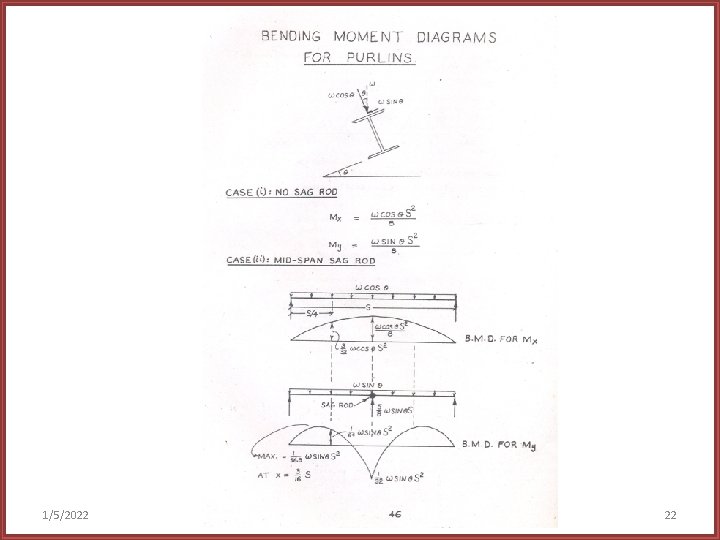 BENDING MOMENT DIAGRAMS
FOR PURLINS.
w
w COS θ θ
w SIN θ
θ
CASE (i): NO SAG ROD
Mx = w COS θ S² / 8
My = w SIN θ S² / 8.
CASE (ii): MID-SPAN SAG ROD
w COS θ
S
S/4
w COS θ S² / 8
3/32 w COS θ S²
B.M.D. FOR Mx
w SIN θ
SAG ROD
w SIN θ S
w SIN θ S²
B.M.D. FOR My
MAX. = w SIN θ S²
AT X = 3/16 S
1/32 w SIN θ S²
1/5/2022
46
22